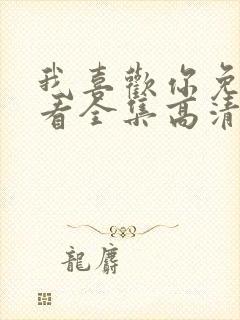 我喜歡你免
看全集高清
龍麝